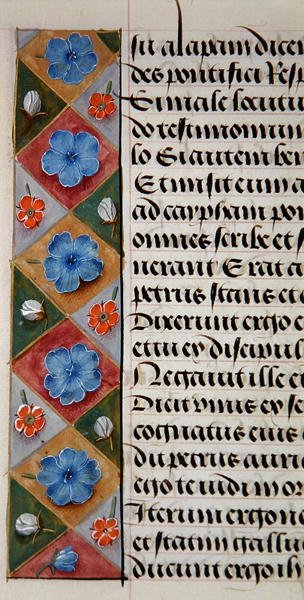 su alapam dicen
des pontifici Resp
Si male locutu
do testimonium
lo Si autem ben
Et misit eum a
ad caypham pon
omnes scribe et s
nerant Erat a
petrus stans et
Dixerunt ergo e
et tu ex discipul
Negauit ille e
Dicit vnus ex se
cognatus eius
dit petrus auri
ego te uidi in or
Iterum ergo ne
et statim gallu
ducunt ergo ih